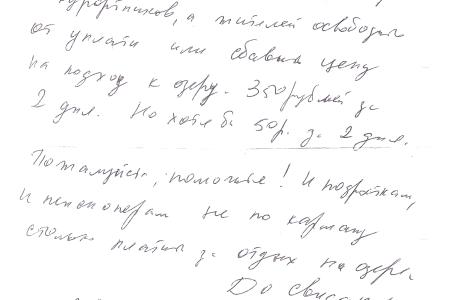 курортников, а жителей освободить
от уплаты или сбавить цену
на подход к озеру. 350 рублей за
2 дня. Но хотя б 50 р. за 2 дня.
Пожалуйста, помогите! И подросткам,
и пенсионерам не по карману
столько платить за отдых на озере.
До свидан